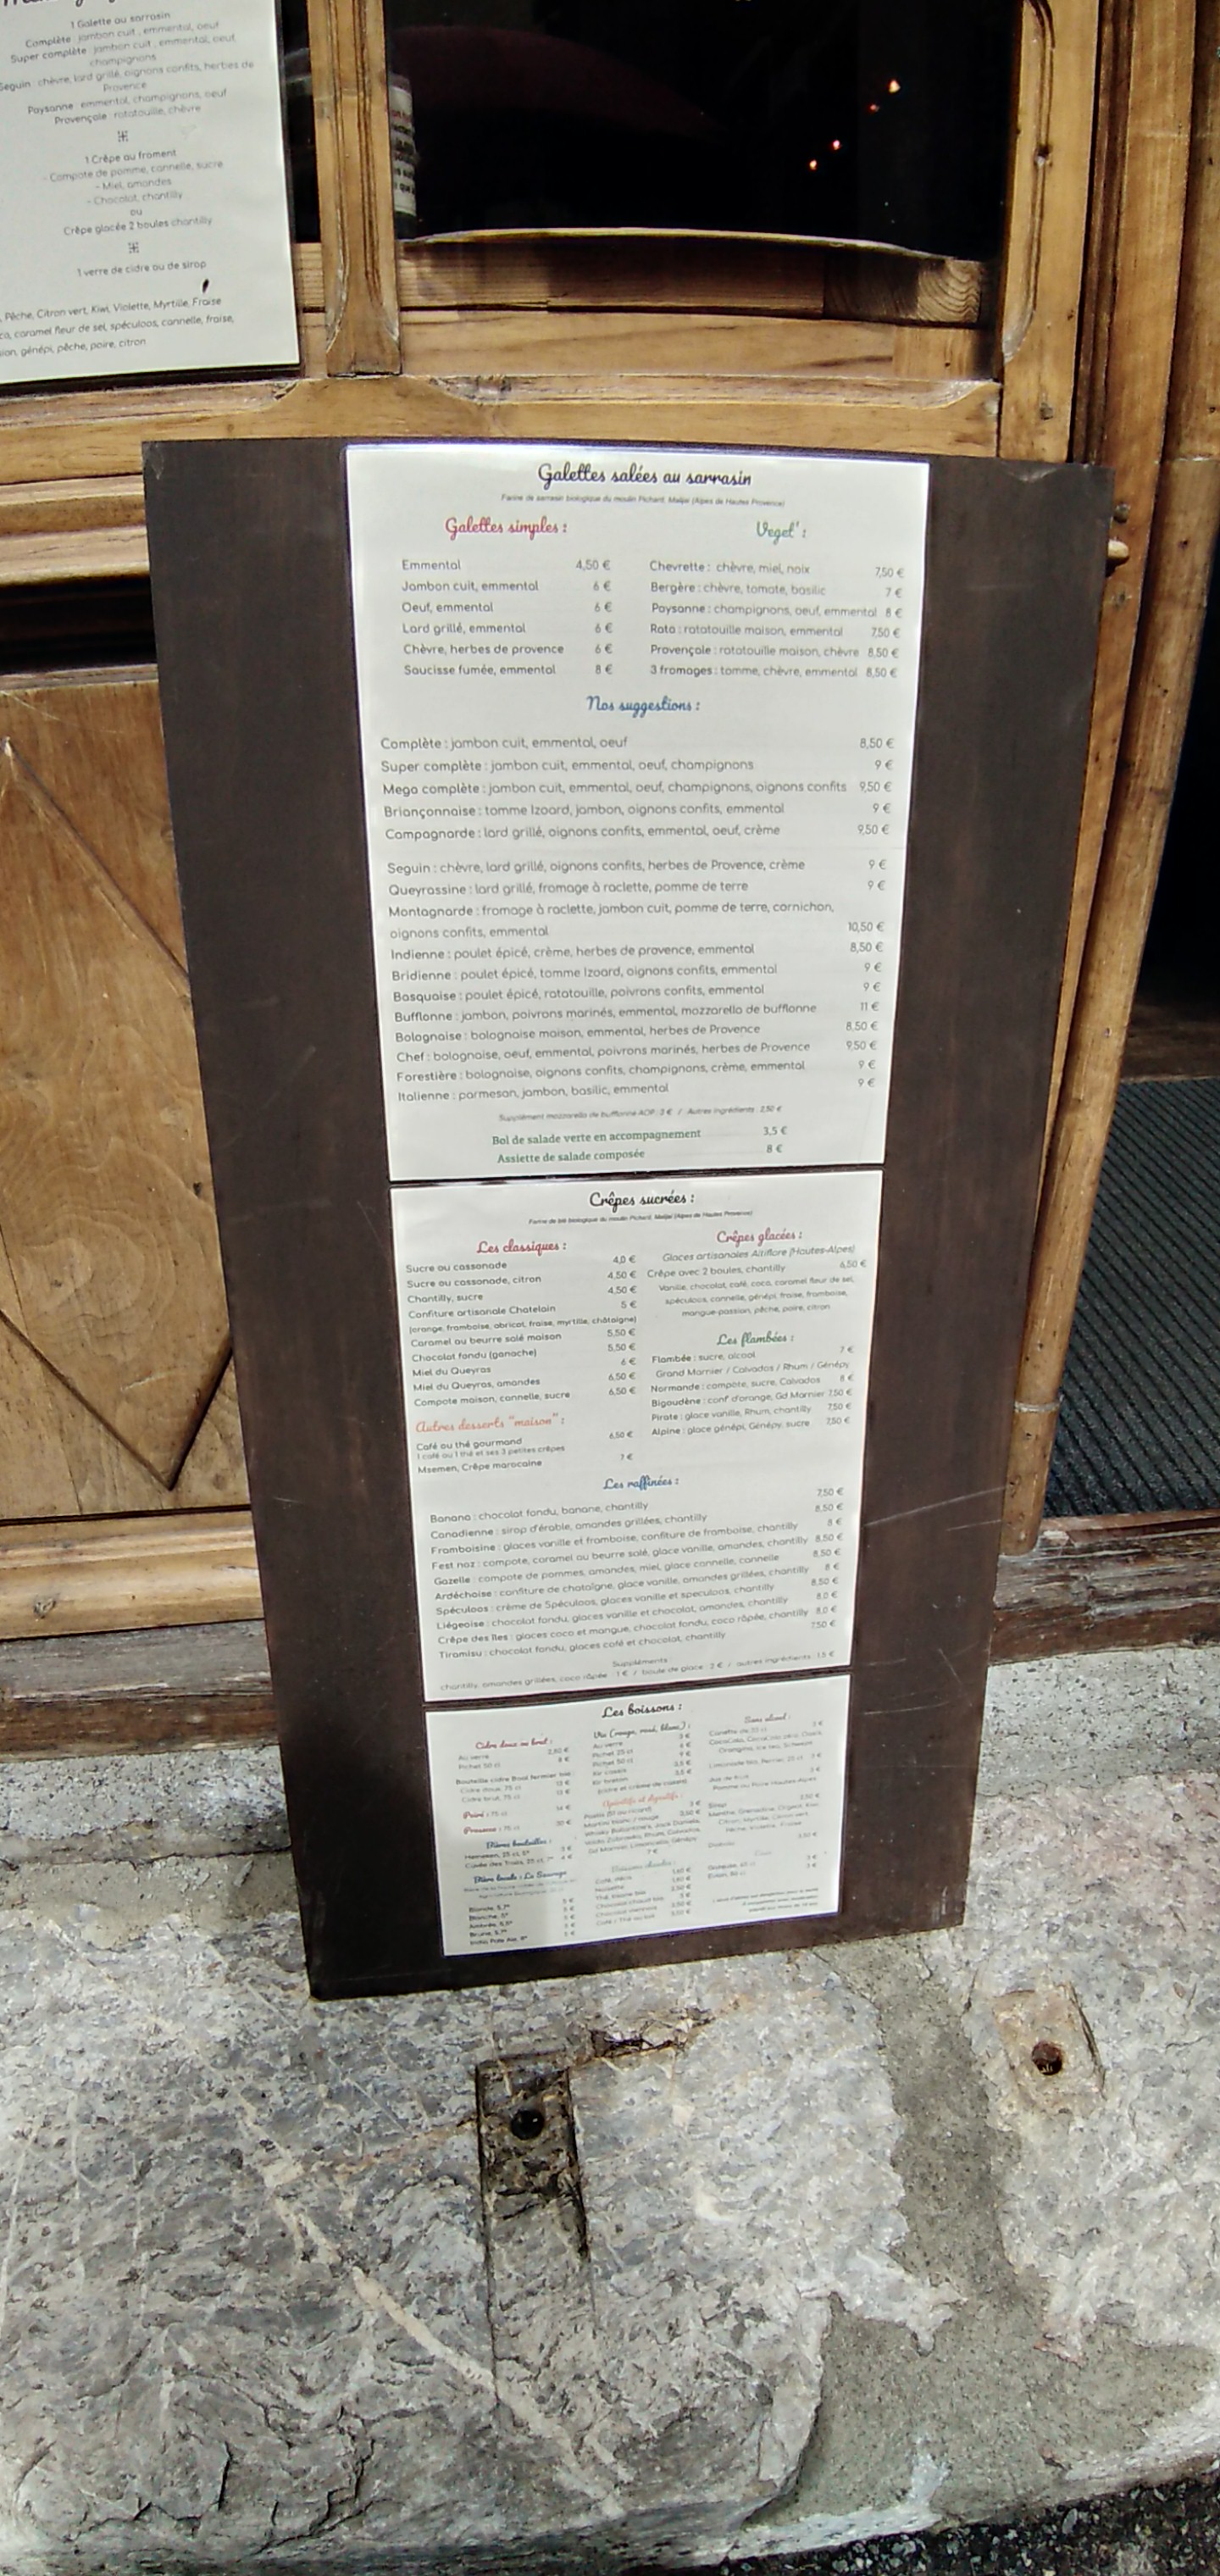 1 Galette au sarrasin
Complète : jambon cuit, emmental, oeuf
Super complète : jambon cuit, emmental, oeuf,
champignons
Seguin : chèvre, lard grillé, oignons confits, herbes de
Provence
Paysanne : emmental, champignons, oeuf
Provençale : ratatouille, chèvre
1 Crêpe au froment
- Compote de pomme, cannelle, sucre
- Miel, amandes
- Chocolat, chantilly
ou
Crêpe glacée 2 boules chantilly
1 verre de cidre ou de sirop
, Pêche, Citron vert, Kiwi, Violette, Myrtille, Fraise
caramel fleur de sel, spéculoos, cannelle, fraise,
génépi, pêche, poire, citron
Galettes salées au sarrasin
Farine de sarrasin biologique du moulin Pichard, Malijai (Alpes de Hautes Provence)
Galettes simples :
Emmental 4,50 €
Jambon cuit, emmental 6 €
Oeuf, emmental 6 €
Lard grillé, emmental 6 €
Chèvre, herbes de provence 6 €
Saucisse fumée, emmental 8 €
Veget' :
Chevrette : chèvre, miel, noix 7,50 €
Bergère : chèvre, tomate, basilic 7 €
Paysanne : champignons, oeuf, emmental 8 €
Rata : ratatouille maison, emmental 7,50 €
Provençale : ratatouille maison, chèvre 8,50 €
3 fromages : tomme, chèvre, emmental 8,50 €
Nos suggestions :
Complète : jambon cuit, emmental, oeuf 8,50 €
Super complète : jambon cuit, emmental, oeuf, champignons 9 €
Mega complète : jambon cuit, emmental, oeuf, champignons, oignons confits 9,50 €
Briançonnaise : tomme Izoard, jambon, oignons confits, emmental 9 €
Campagnarde : lard grillé, oignons confits, emmental, oeuf, crème 9,50 €
Seguin : chèvre, lard grillé, oignons confits, herbes de Provence, crème 9 €
Queyrassine : lard grillé, fromage à raclette, pomme de terre 9 €
Montagnarde : fromage à raclette, jambon cuit, pomme de terre, cornichon,
oignons confits, emmental 10,50 €
Indienne : poulet épicé, crème, herbes de provence, emmental 8,50 €
Bridienne : poulet épicé, tomme Izoard, oignons confits, emmental 9 €
Basquaise : poulet épicé, ratatouille, poivrons confits, emmental 9 €
Bufflonne : jambon, poivrons marinés, emmental, mozzarella de bufflonne 11 €
Bolognaise : bolognaise maison, emmental, herbes de Provence 8,50 €
Chef : bolognaise, oeuf, emmental, poivrons marinés, herbes de Provence 9,50 €
Forestière : bolognaise, oignons confits, champignons, crème, emmental 9 €
Italienne : parmesan, jambon, basilic, emmental 9 €
Supplément mozzarella de bufflonne AOP : 3 € / Autres ingrédients : 2,50 €
Bol de salade verte en accompagnement 3,5 €
Assiette de salade composée 8 €
Crêpes sucrées :
Farine de blé biologique du moulin Pichard, Malijai (Alpes de Hautes Provence)
Les classiques :
Sucre ou cassonade 4,0 €
Sucre ou cassonade, citron 4,50 €
Chantilly, sucre 4,50 €
Confiture artisanale Chatelain 5 €
(orange, framboise, abricot, fraise, myrtille, châtaigne)
Caramel au beurre salé maison 5,50 €
Chocolat fondu (ganache) 5,50 €
Miel du Queyras 6 €
Miel du Queyras, amandes 6,50 €
Compote maison, cannelle, sucre 6,50 €
Autres desserts "maison" :
Café ou thé gourmand 6,50 €
1 café ou 1 thé et ses 3 petites crêpes
Msemen, Crêpe marocaine 7 €
Crêpes glacées :
Glaces artisanales Altiflore (Hautes-Alpes)
Crêpe avec 2 boules, chantilly 6,50 €
Vanille, chocolat, café, coco, caramel fleur de sel,
spéculoos, cannelle, génépi, fraise, framboise,
mangue-passion, pêche, poire, citron
Les flambées :
Flambée : sucre, alcool 7 €
Grand Marnier / Calvados / Rhum / Génépy
Normande : compote, sucre, Calvados 8 €
Bigoudène : conf d'orange, Gd Marnier 7,50 €
Pirate : glace vanille, Rhum, chantilly 7,50 €
Alpine : glace génépi, Génépy, sucre 7,50 €
Les raffinées :
Banana : chocolat fondu, banane, chantilly 7,50 €
Canadienne : sirop d'érable, amandes grillées, chantilly 8,50 €
Framboisine : glaces vanille et framboise, confiture de framboise, chantilly 8 €
Fest noz : compote, caramel au beurre salé, glace vanille, amandes, chantilly 8,50 €
Gazelle : compote de pommes, amandes, miel, glace cannelle, cannelle 8,50 €
Ardéchoise : confiture de chataîgne, glace vanille, amandes grillées, chantilly 8 €
Spéculoos : crème de Spéculoos, glaces vanille et speculoos, chantilly 8,50 €
Liégeoise : chocolat fondu, glaces vanille et chocolat, amandes, chantilly 8,0 €
Crêpe des Iles : glaces coco et mangue, chocolat fondu, coco râpée, chantilly 8,0 €
Tiramisu : chocolat fondu, glaces café et chocolat, chantilly 7,50 €
Suppléments
chantilly, amandes grillées, coco râpée : 1 € / boule de glace : 2 € / autres ingrédients : 1,5 €
Les boissons :
Cidre doux ou brut :
Au verre 2,80 €
Pichet 50 cl 8 €
Cidre doux, 75 cl
Cidre brut, 75 cl
Poiré : 75 cl 14 €
Bières bouteilles :
Heineken, 25 cl, 5°
Bière locale : La Sauvage
Blonde, 5,7°
Blanche, 5°
Ambrée, 5,5°
Brune, 5,7°
India Pale Ale, 6°
Vin (rouge, rosé, blanc) :
Au verre
Pichet 25 cl
Pichet 50 cl
Kir breton
Apéritifs et digestifs :
Martini blanc / rouge
Whisky Ballantine's, Jack Daniels,
Gd Marnier, Limoncello, Génépy
Boissons chaudes :
Café, déca
Noisette
Chocolat viennois
Café / Thé au lait
Sans alcool :
Canette de 33 cl 3 €
Orangina, Ice tea, Schweps
Pomme ou Poire Hautes-Alpes
Sirop
Menthe, Grenadine, Orgeat, Kiwi,
Pêche, Violette, Fraise
Diabolo